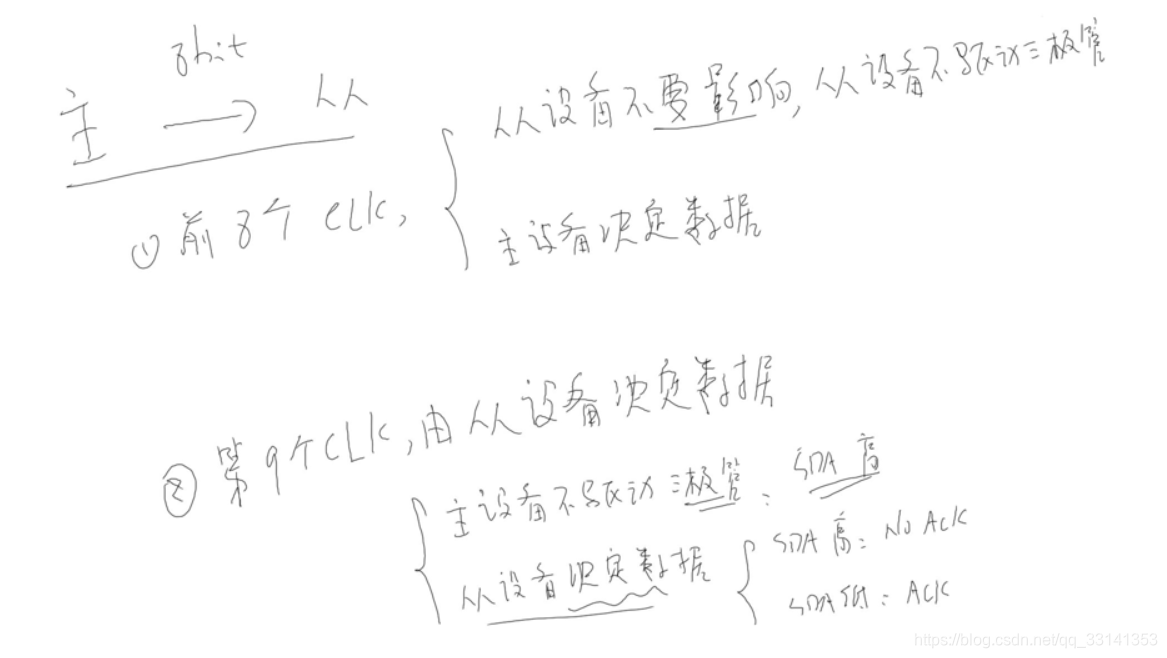 8bit
主 → 从
① 前8个CLK,
从设备不要影响,从设备不驱动三极管
主设备决定数据
② 第9个CLK,由从设备决定数据
主设备不驱动三极管: SDA高
从设备决定数据
SDA高: No ACK
SDA低: ACK
https://blog.csdn.net/qq_33141353